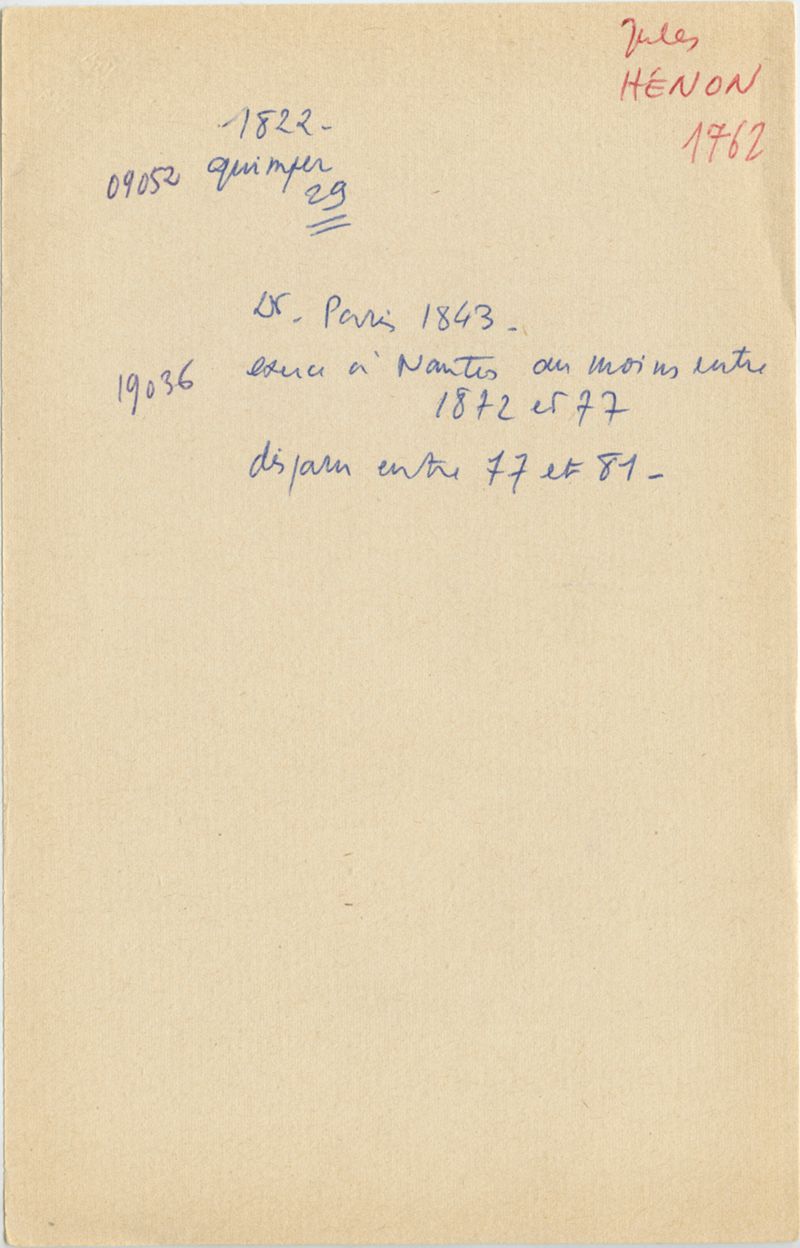 Jules
HÉNON
1762
1822-
09052 quimper
29
Dr. Paris 1843-
19036 exerce à Nantes au moins entre
1872 et 77
disparu entre 77 et 81-